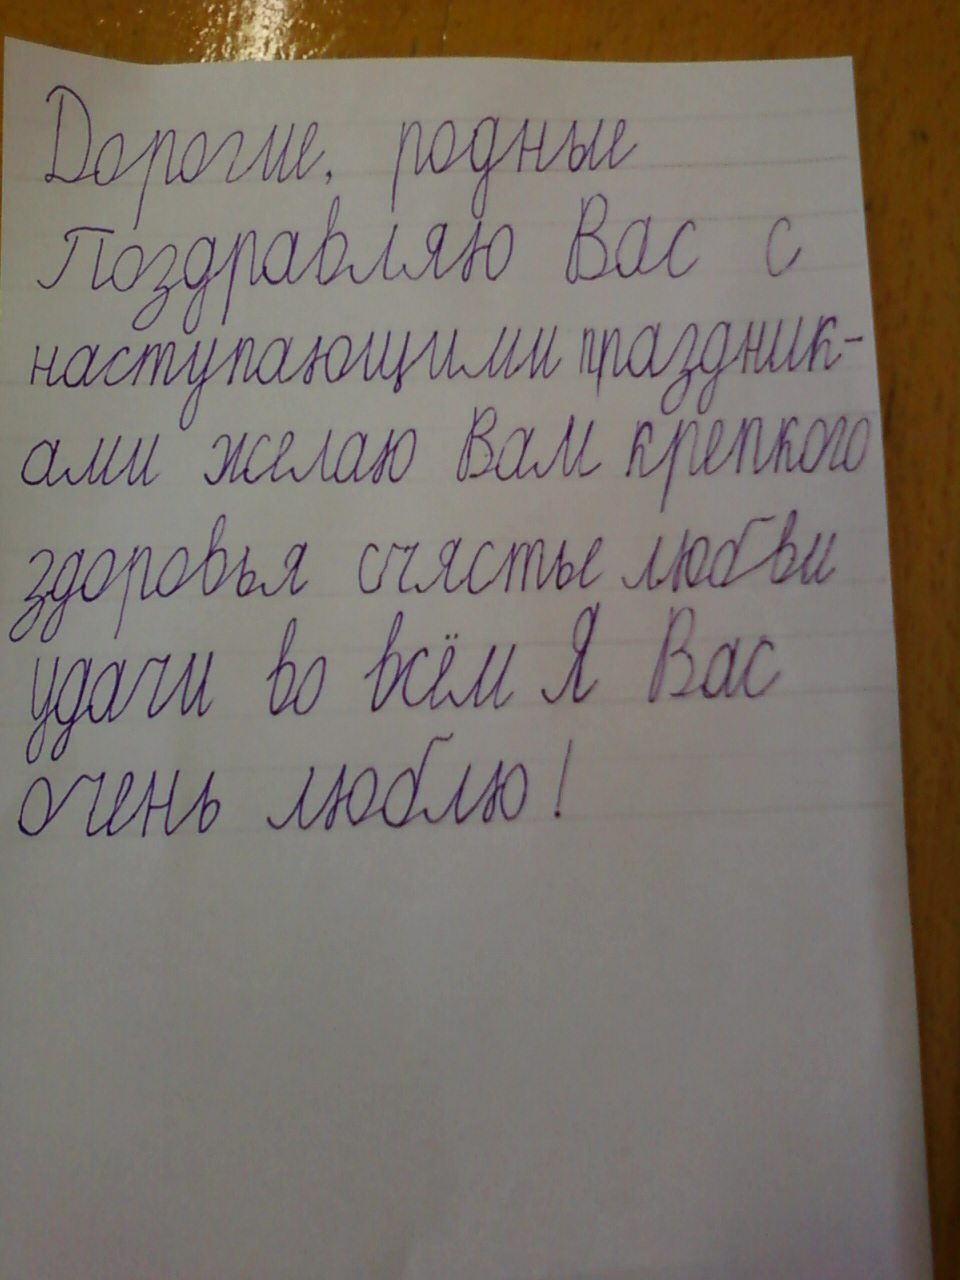 Дорогие, родные
Поздравляю Вас с
наступающими праздник-
ами желаю Вам крепкого
здоровья счястье любви
удачи во всём Я Вас
очень люблю!